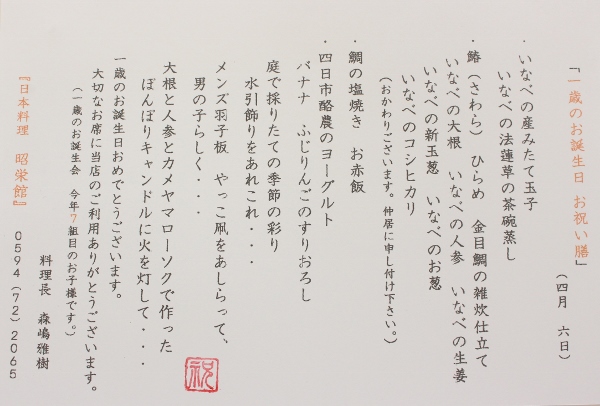 「一歳のお誕生日 お祝い膳」
(四月 六日)
・いなべの産みたて玉子
いなべの法蓮草の茶碗蒸し
・鰆(さわら) ひらめ 金目鯛の雑炊仕立て
いなべの大根 いなべの人参 いなべの生姜
いなべの新玉葱 いなべのお葱
いなべのコシヒカリ
(おかわりございます。仲居に申し付け下さい。)
・鯛の塩焼き お赤飯
・四日市酪農のヨーグルト
バナナ ふじりんごのすりおろし
庭で採りたての季節の彩り
水引飾りをあれこれ・・・
メンズ羽子板 やっこ凧をあしらって、
男の子らしく・・・
大根と人参とカメヤマローソクで作った
ぼんぼりキャンドルに火を灯して・・・
一歳のお誕生日おめでとうございます。
大切なお席に当店のご利用ありがとうございます。
(一歳のお誕生会 今年7組目のお子様です。)
料理長 森嶋雅樹
『日本料理 昭栄館』
0594(72)2065
祝